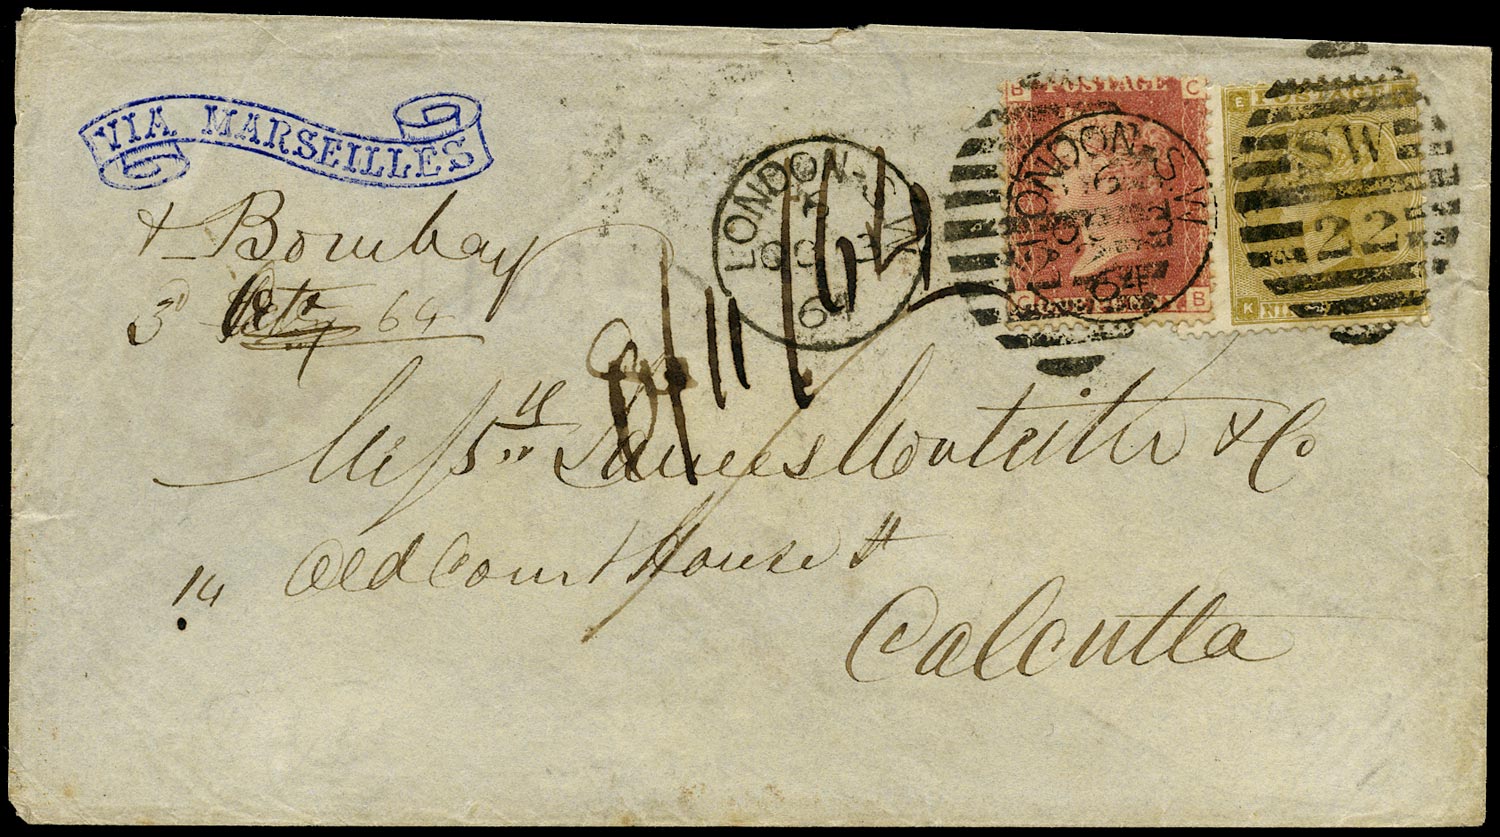 VIA MARSEILLES
& Bombay
3d Octr 64
LONDON-S.W
OC 3
64
B POSTAGE C
C ONE PENNY B
LONDON-S.W
64
E POSTAGE
K
SW
22
Messrs James Monteith & Co
14 Old Court House St
Calcutta